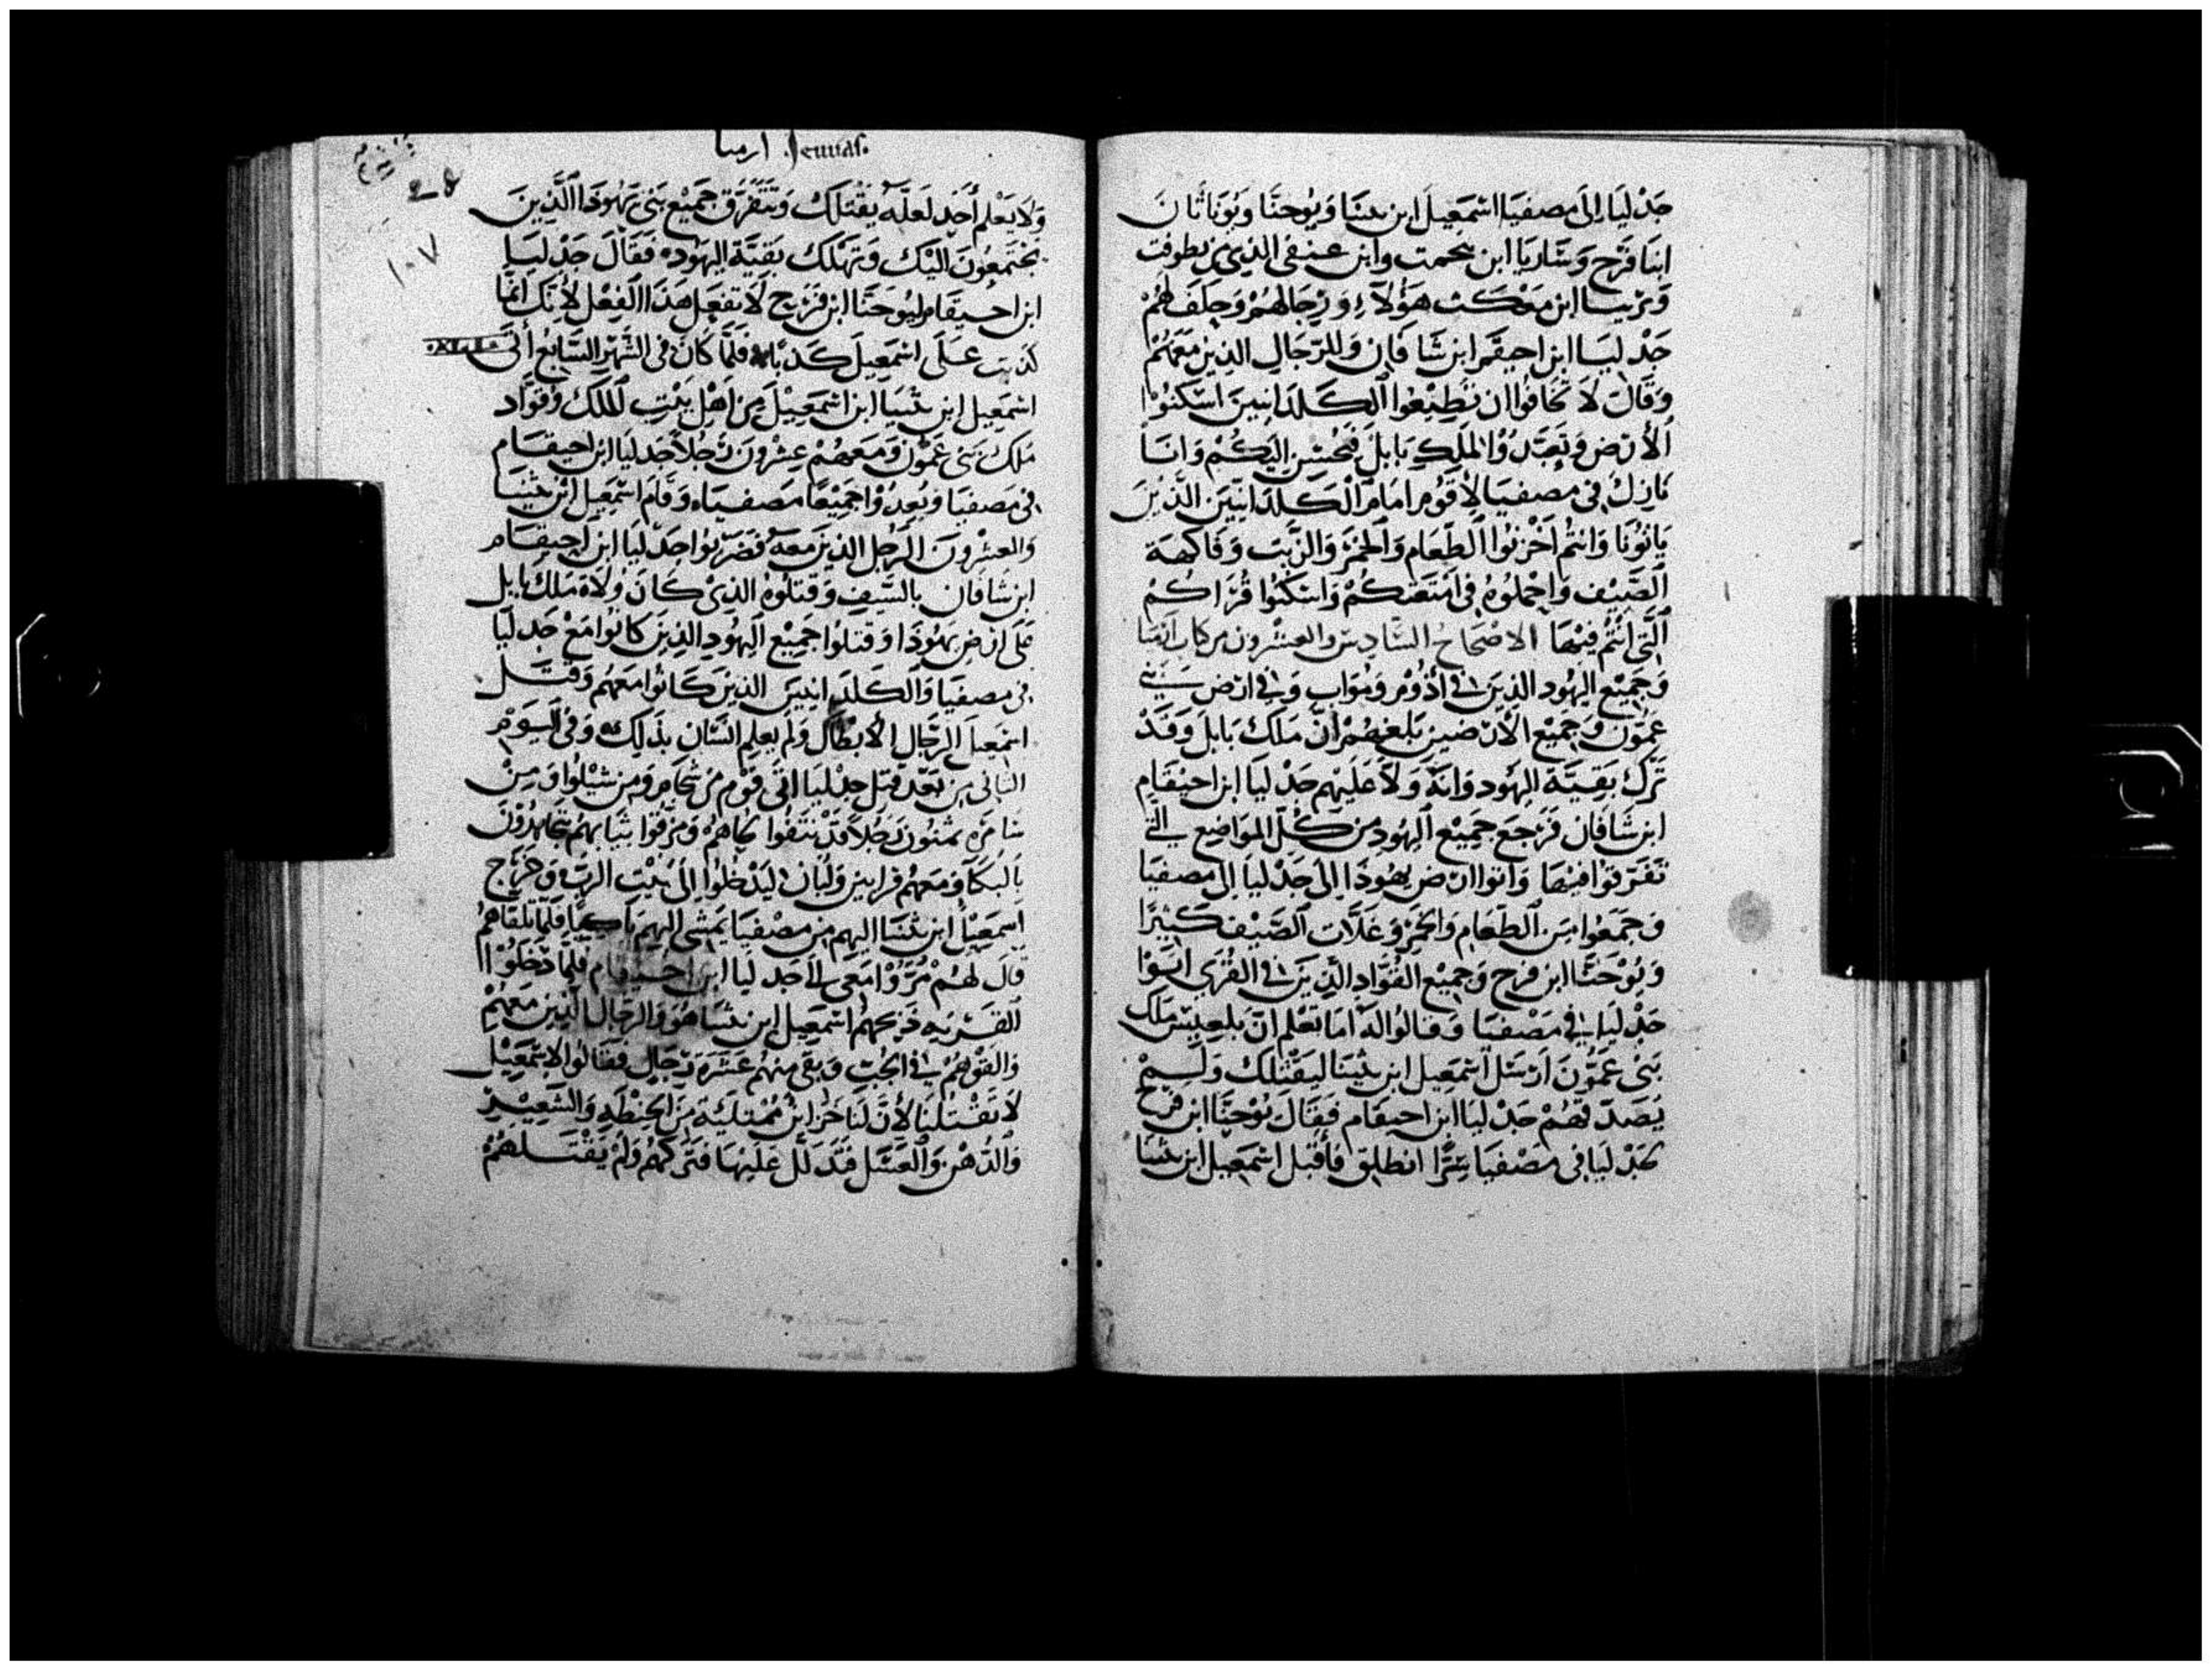 جَدْليَا إلى مصفيَا اشمَعيل ابن نثنيَا وَيُوحنَّا وَيُونَاثَانَ
ابنَا قرَح وَسَاريَا ابن تنحمت وابن عنفى الذي من بطوفت
وَيزنيا ابن معكت هَؤُلآءِ وَرِجَالهُمْ وَحَلَفَ لهُمْ
جَدْليَا ابن احيقَم ابن شافَان وَللرّجَال الذين معَهُمْ
وَقَال لا تخَافُوا ان تُطِيْعُوا الكَلدَانيينَ اسْكنُوا
الأرْض وَتَعَبَّدُوْا لملك بَابلَ فَيُحْسَن اليكُمْ وَانَا
نَازِلُ في مصفيَا لأقوم امَام الكَلدَانيّينَ الذِيْنَ
يَاتُونَا وَانتمُ اخْزنُوا الطّعَام وَالخمْرَ وَالزّيت وَفَاكهَة
الصَّيْف وَاجْعلُوهُ في امْتعَتكُمْ وَاسْكنُوا قُرَاكُمْ
الّتى انْتُمْ فيْهَا الاصْحَاحُ السَّادِسُ والعشْرُونَ من كتاب ارميا
وَجَمِيْع اليَهُودِ الذِينَ في أدُوْم وَمُوَاب وَفي ارْض بَنِي
عَمُون وَجَميْع الأرَضينَ بَلغَهُمْ أنّ مَلكَ بَابلَ وَقَدْ
تَرَكَ بَقيّة اليَهُود وَانّه وَلاَ عَلَيْهم جَدْليَا ابن احيقَام
ابن شَافان فَرَجع جَمِيْع اليَهُودِ من كُلّ المواضِع التي
تَفَرّقوا فيْهَا وَاتوا ارْض يَهُوذَا إلى جَدْليَا إلى مصفيَا
وَجَمَعُوا مِن الطعَام وَالخمْر وَغَلاّت الصَّيْف كَثيرًا
وَيُوْحَنَّا ابن قرح وَجميْع القُوَّادِ الذِيْنَ في القُرَى اتَوْا
جَدْليَا في مَصْفيَا وَقالُوا لهُ امَا تَعْلم انّ بلعيسَ ملك
بَنى عَمُّونَ ارْسَل اشمَعِيل ابن نثينَا ليَقْتُلكَ وَلَمْ
يُصَدّقهُمْ جَدْليَا ابن احيقام فَقَالَ يُوْحَنَّا ابن قرح
لجَدْليَا في مَصْفيَا سرًّا انطلق فأقتل اشمَعِيل ابن نثنيَا
ارميا .Jeremias.
٢٤
١٠٧
وَلاَ يَعْلم أحَد لَعلّهُ يَقْتلكَ وَتتَفَرّق جَميْع بَنى يَهُوذَا الّذِينَ
يجْتَمعُونَ اليْكَ وَتهْلكَ بَقيّة اليَهُود فَقَالَ جَدْليَا
ابن احيقَام ليُوحَنَّا ابن قرَيح لاَ تفعَل هَذَا الفِعْل لأنّكَ انمَّا
كَذبت عَلَى اشمَعِيلَ كَذبًا فَلمَّا كَانَ في الشّهْر السَّابع أتى
.XLI.
اشمَعِيل ابن نثنيَا ابن اشمعِيْلَ مِن اهْل بَيْت الملك وَقُوّاد
مَلك بَنى عَمُّون وَمَعَهُمْ عِشْرُونَ رَجُلاً جَدليَا ابن احيقَام
في مَصفيَا وَبعدُوا جَمِيْعًا مَصفيَا وَقَامَ اشمَعِيل ابْن نثنيَا
وَالعشْرُونَ الرّجُل الذِينَ معهُ فضَرَبُوا جَدْليَا ابن احيقَام
ابن شَافان بالسَّيفِ وَقتلُوهُ الذِى كَانَ وُلاهُ مَلك بَابل
عَلى ارْض يَهُوذَا وَقتلوا جَمِيْع اليَهُودِ الذِينَ كَانُوا مَعْ جَدليَا
في مصفيَا وَالكَلدَانيينَ الذِينَ كَانُوا مَعَهُم وَقَتَل
اشمَعِيل الرّجَال الأبطَال وَلم يعلم انْسَان بذَلِكَ وَفى اليَوْم
الثانى من بَعْد قتل جدْليَا اتَى قَوْم من شحام وَمِن شيْلُوا وَمِن
سَامرَه ثمنُون رَجُلاً قدْ نتَفُوا لحاهُم وَمزقُوا ثيَابهُم يتجَاهدُونَ
بَالبُكَا وَمعهُم قرابين وَلبان ليَدْخُلوا إلى بَيْت الرّبّ وَخرَج
اسمَعِيْل ابن نثنيَا اليهم من مَصْفيَا يَمْشى اليهم بَاكيًا فلمّا تلقاهُم
قَال لهُمْ مُرّوْا مَعى الى جَدليَا ابن احيقام فلمَّا دَخَلُوْا
القَريه ذَبحَهُم اشمَعيل ابن نثنيَا هُوَ وَالرجَال الذين مَعَهُمْ
وَالقَوْهُمْ في الجُبّ وَبقى منهُم عَشْرَة رجَال فقَالُوا لاشمَعِيْل
لاَ تَقْتلْنَا لأنّ لنَا خَزَائن مُمْتلئة مِن الحِنْطَه وَالشّعِيْر
وَالدّهْن وَالعسَل فتدلل عَليْهَا فترَكهُم وَلم يَقْتلهُمْ